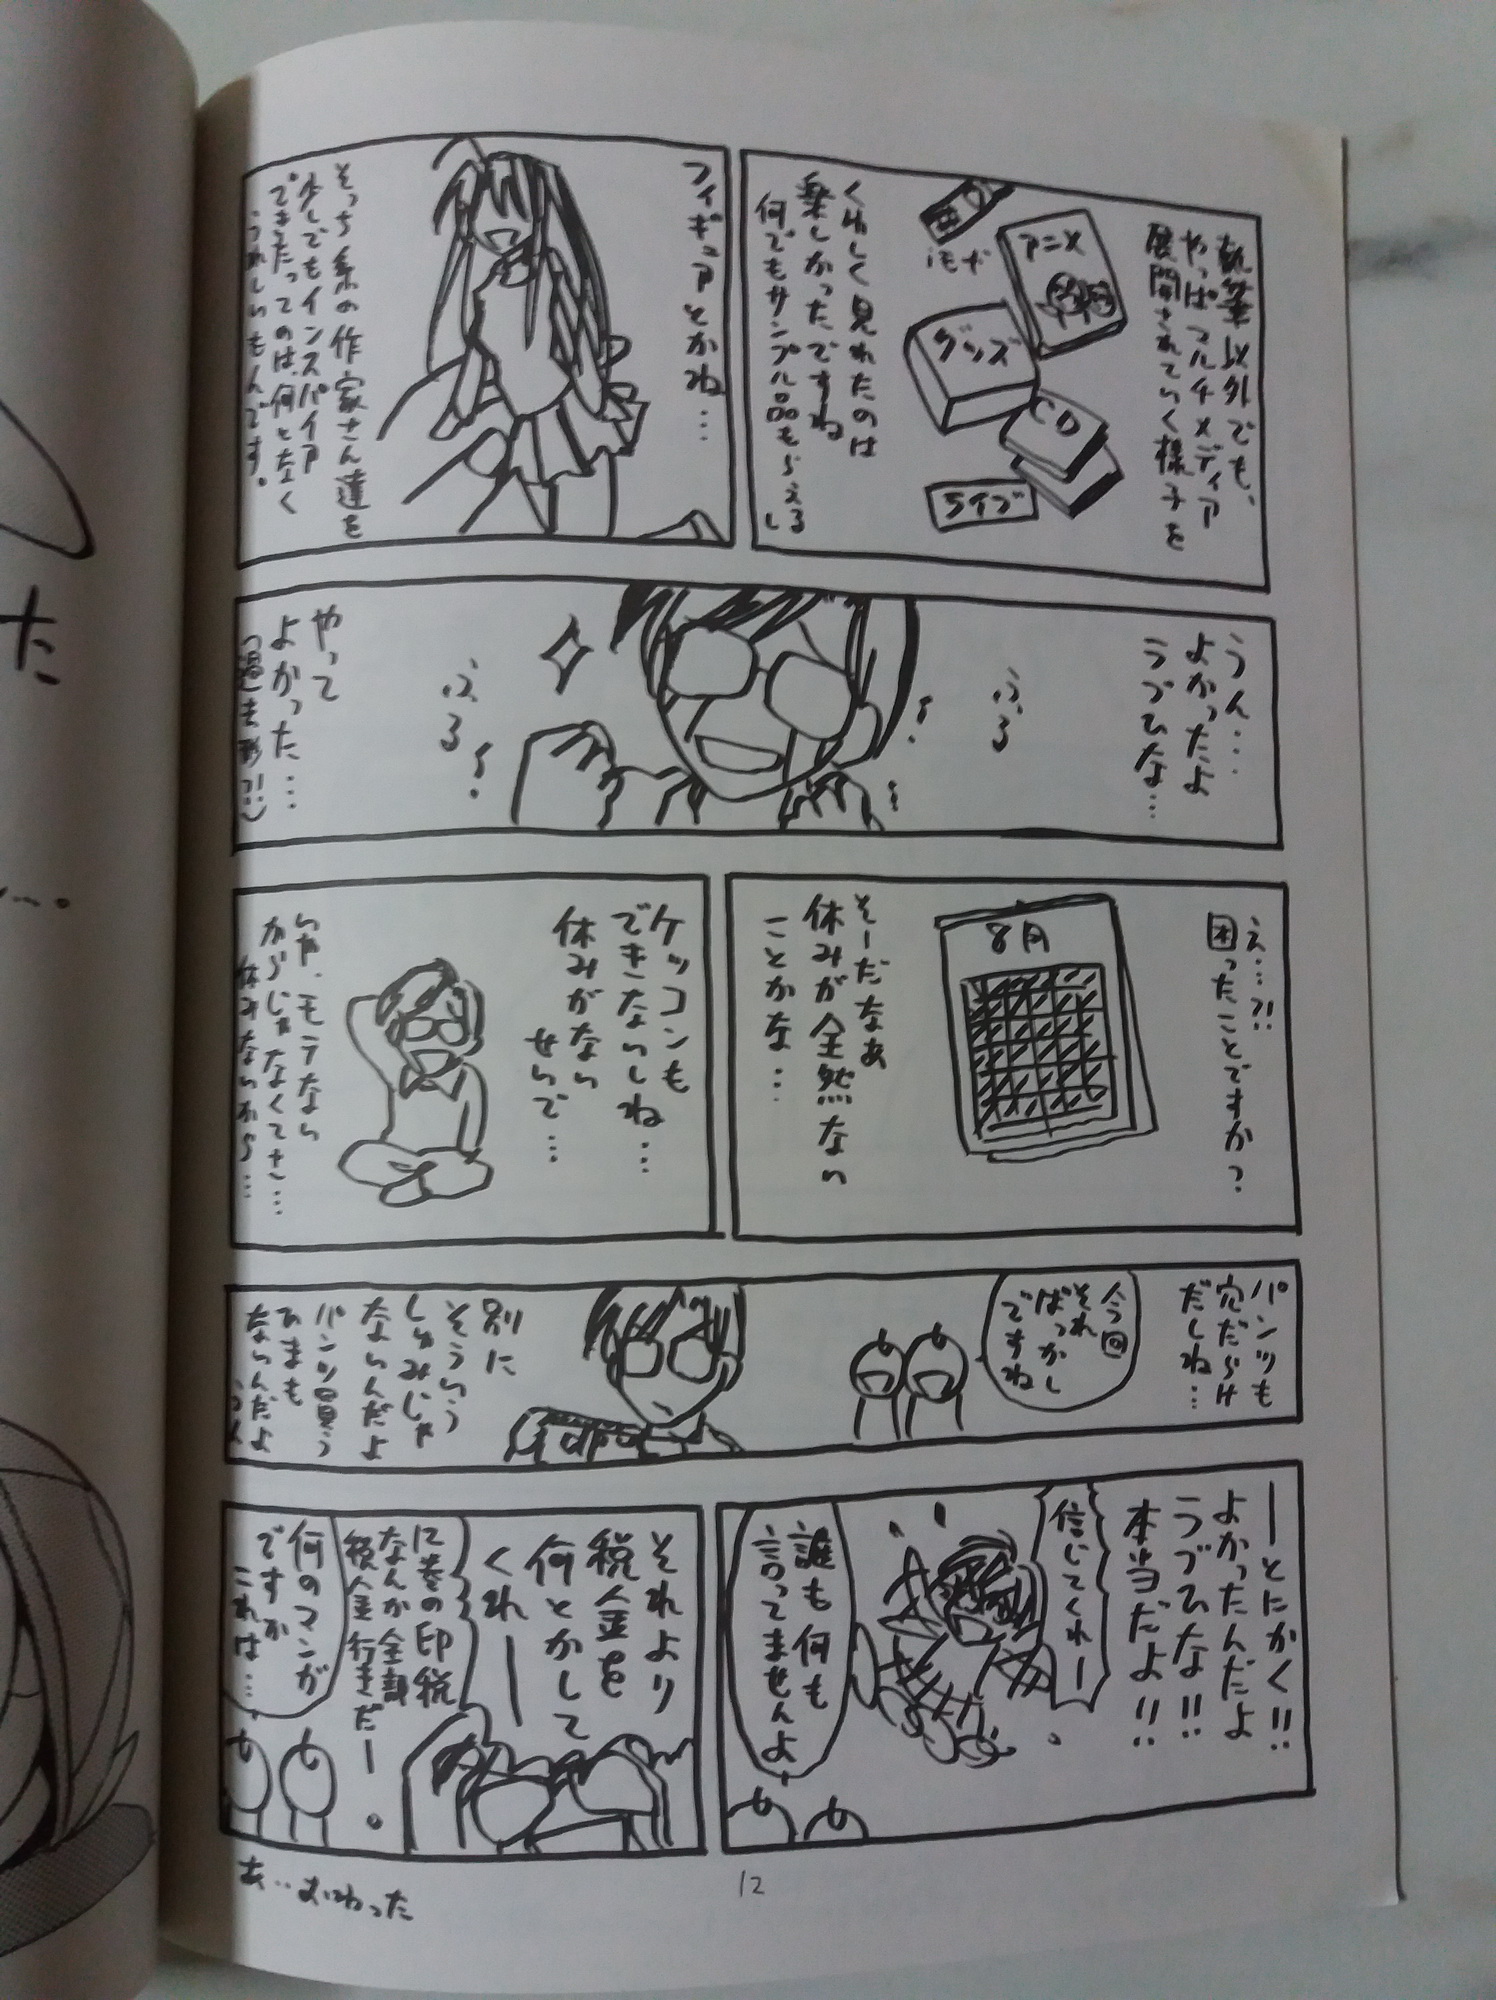 執筆以外でも、
やっぱマルチメディア
展開されていく様子を
アニメ
iモード
グッズ
CD
ライブ
くわしく見れたのは
楽しかったですね
何でもサンプル品もらえるし
フィギュアとかね…
そっち系の作家さん達を
少しでもインスパイア
できたってのは、何となく
うれしいもんです。
うん…
よかったよ
ラブひな…
ふる
ふる
やって
よかった…
(過去形?!)
え…?!
困ったことですか?
8月
そーだなぁ
休みが全然ない
ことかな…
ケッコンも
できないしね…
休みがない
せいで…
いや、モテない
からじゃなくてさ…
休みないから…
パンツも
穴だらけ
だしね…
今回
それ
ばっかし
ですね
別に
そういう
しゅみじゃ
ないんだよ
パンツ買う
ひまも
ないんだよ
うん
ーとにかく!!
よかったんだよ
ラブひな!!
本当だよ!!
信じてくれー
誰も何も
言ってませんよ
それより
税金を
何とかして
くれー
12巻の印税
なんか全部
税金行きだー
何のマンガ
ですか
これは…
あ…おわった
12
た
…。